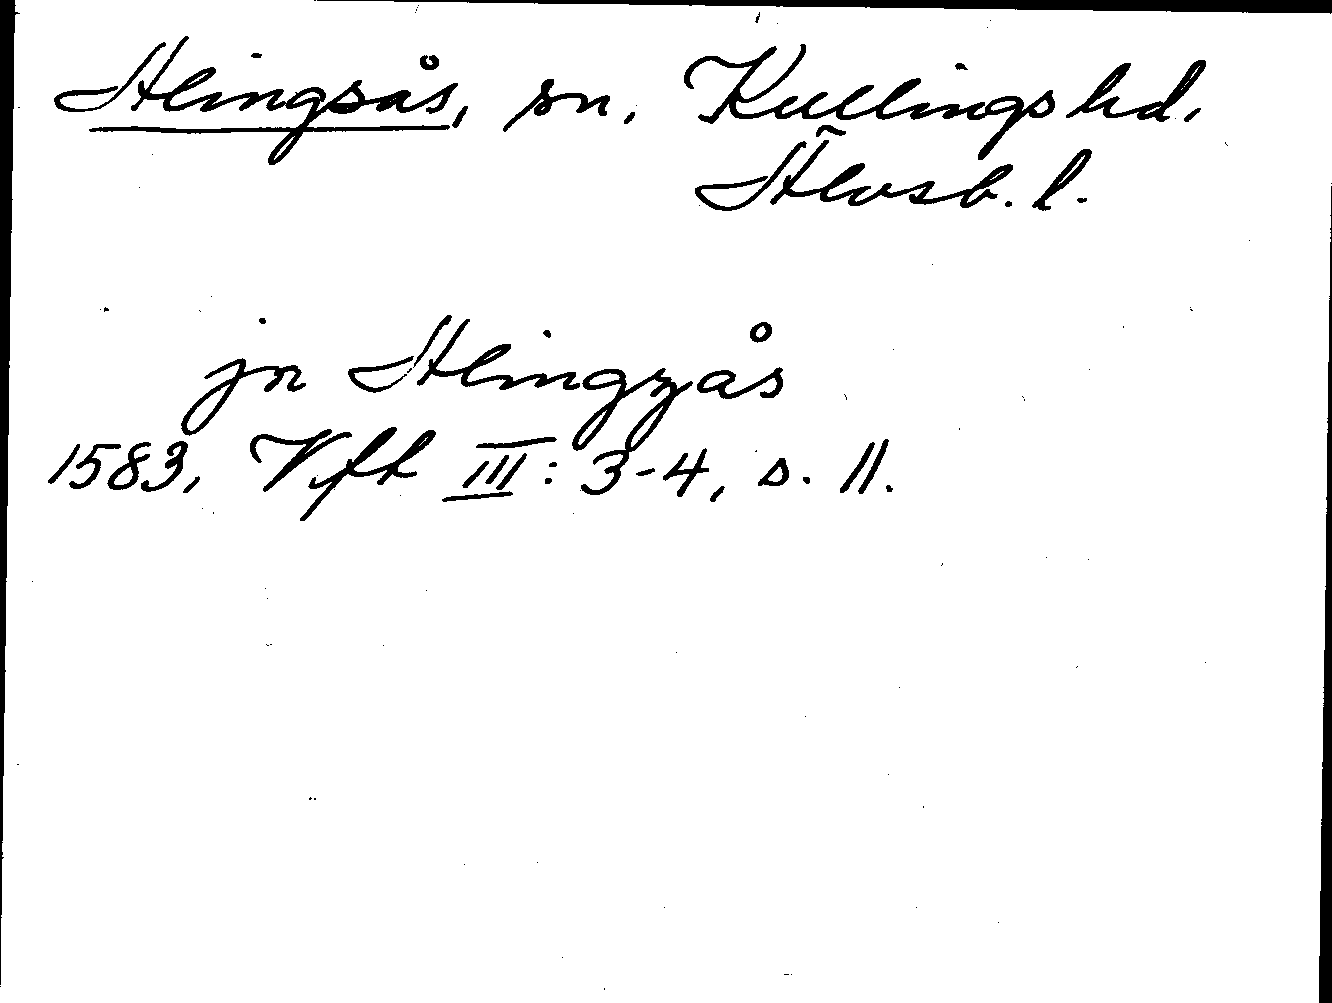 Alingsås, sn, Kullings hd,
Älvsb. l.
jn Alingzås
1583, Vfft III: 3-4, s. 11.